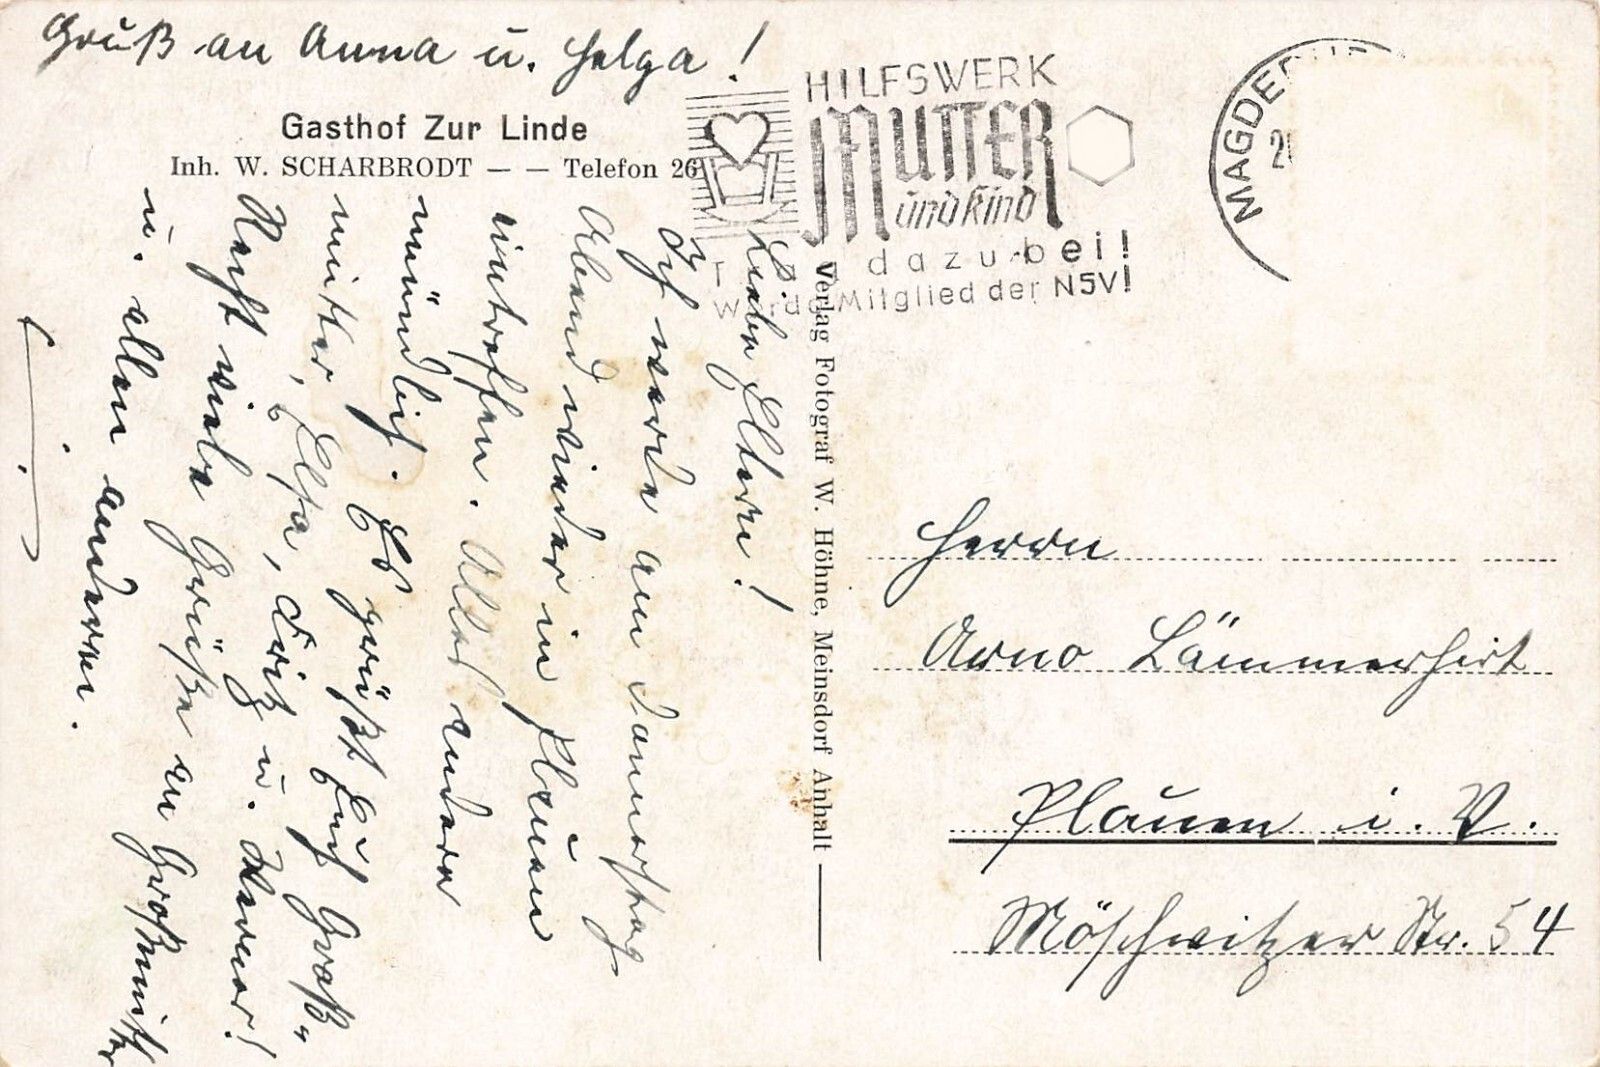 Gruß an Anna u. Helga!
Gasthof Zur Linde
Inh. W. SCHARBRODT — — Telefon 26
HILFSWERK
MUTTER
und Kind
dazu bei!
Werde Mitglied der NSV!
MAGDEBUR
2
L. Liebe Eltern!
Ich werde am Donnerstag
Abend wieder in Plauen
eintreffen. Alles andere
mündlich. Es grüßt Euch Groß-
mutter, Elsa, Fritz u. Werner!
Recht viele Grüße an Großmutter
u. allen anderen.
Verlag Fotograf W. Höhne, Meinsdorf Anhalt
Herrn
Arno Lämmerhirt
Plauen i. V.
Möschwitzer Str. 54